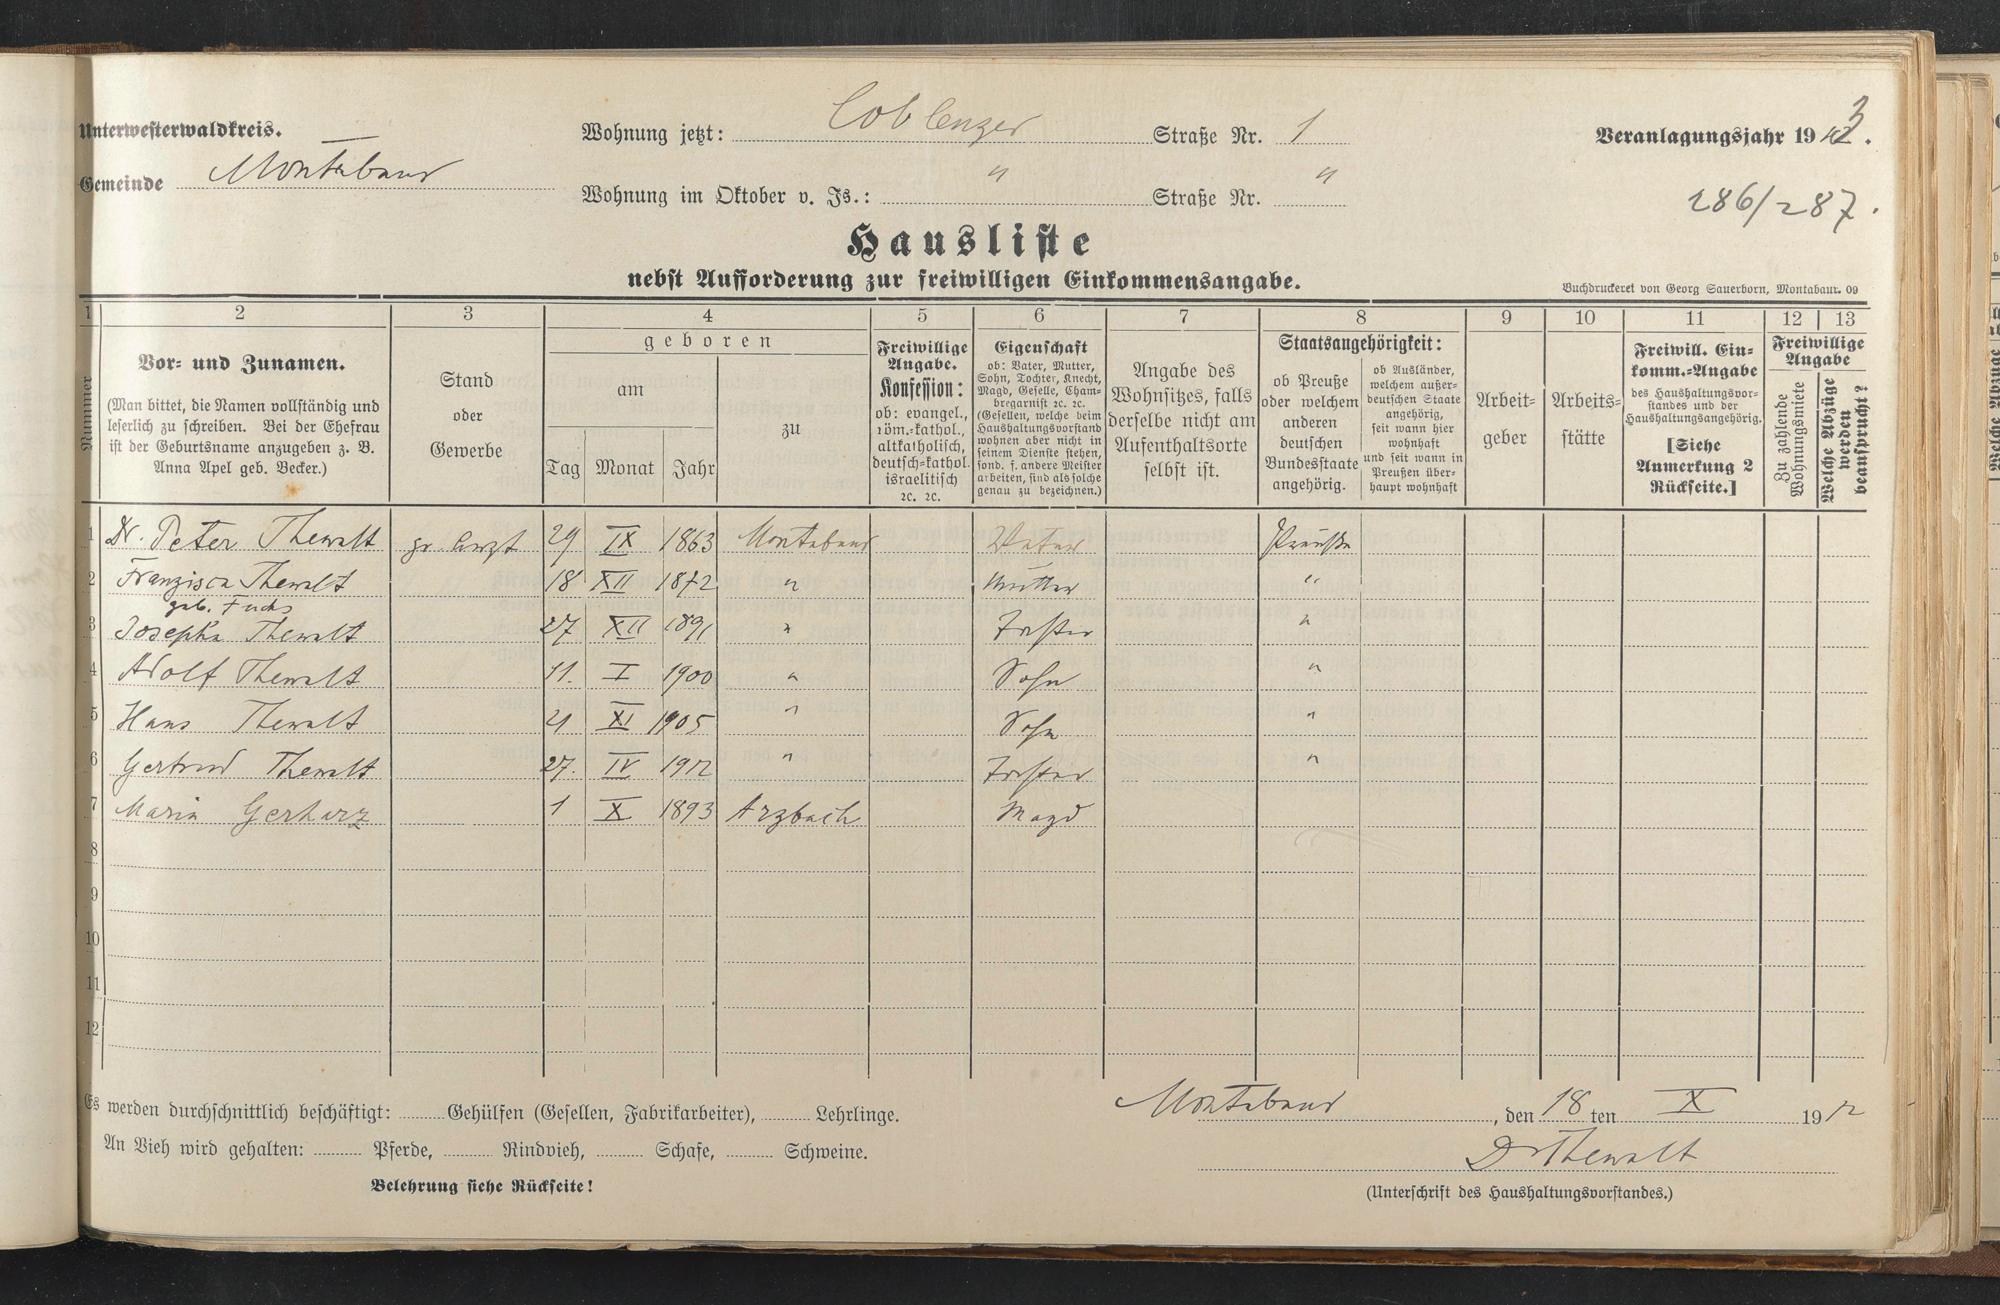 Unterwesterwaldkreis.
Gemeinde Montabaur
Wohnung jetzt: Coblenzer Straße Nr. 1
Wohnung im Oktober v. Js.: " Straße Nr. "
Veranlagungsjahr 1913.
286/287.
Hausliste
nebst Aufforderung zur freiwilligen Einkommensangabe.
Buchdruckerei von Georg Sauerborn, Montabaur. 09
1 2 3 4 5 6 7 8 9 10 11 12 13
Nummer
Vor- und Zunamen.
(Man bittet, die Namen vollständig und
leserlich zu schreiben. Bei der Ehefrau
ist der Geburtsname anzugeben z. B.
Anna Apel geb. Becker.)
Stand
oder
Gewerbe
geboren
am
Tag Monat Jahr
zu
Freiwillige
Angabe.
Konfession:
ob: evangel.,
röm.-kathol.,
altkatholisch,
deutsch-kathol.
israelitisch
ꝛc. ꝛc.
Eigenschaft
ob: Vater, Mutter,
Sohn, Tochter, Knecht,
Magd, Geselle, Cham-
bregarnist ꝛc. ꝛc.
(Gesellen, welche beim
Haushaltungsvorstand
wohnen aber nicht in
seinem Dienste stehen,
sond. f. andere Meister
arbeiten, sind als solche
genau zu bezeichnen.)
Angabe des
Wohnsitzes, falls
derselbe nicht am
Aufenthaltsorte
selbst ist.
Staatsangehörigkeit:
ob Preuße
oder welchem
anderen
deutschen
Bundesstaate
angehörig.
ob Ausländer,
welchem außer-
deutschen Staate
angehörig,
seit wann hier
wohnhaft
und seit wann in
Preußen über-
haupt wohnhaft
Arbeit-
geber
Arbeits-
stätte
Freiwill. Ein-
komm.-Angabe
des Haushaltungsvor-
standes und der
Haushaltungsangehörig.
[Siehe
Anmerkung 2
Rückseite.]
Freiwillige
Angabe
Zu zahlende
Wohnungsmiete
Welche Abzüge
werden
beansprucht?
1 Dr. Peter Thewalt pr. Arzt 29 IX 1863 Montabaur Vater Preuße
2 Franzisca Thewalt 18 XII 1872 " Mutter "
geb. Fuchs
3 Josepha Thewalt 27 XII 1891 " Tochter "
4 Adolf Thewalt 11. I 1900 " Sohn "
5 Hans Thewalt 21 XI 1905 " Sohn "
6 Gertrud Thewalt 27. IV 1912 " Tochter "
7 Maria Gerharz 1 X 1893 Arzbach Magd
8
9
10
11
12
Es werden durchschnittlich beschäftigt: Gehülfen (Gesellen, Fabrikarbeiter), Lehrlinge.
An Vieh wird gehalten: Pferde, Rindvieh, Schafe, Schweine.
Belehrung siehe Rückseite!
Montabaur, den 18 ten X 1912
Dr Thewalt
(Unterschrift des Haushaltungsvorstandes.)